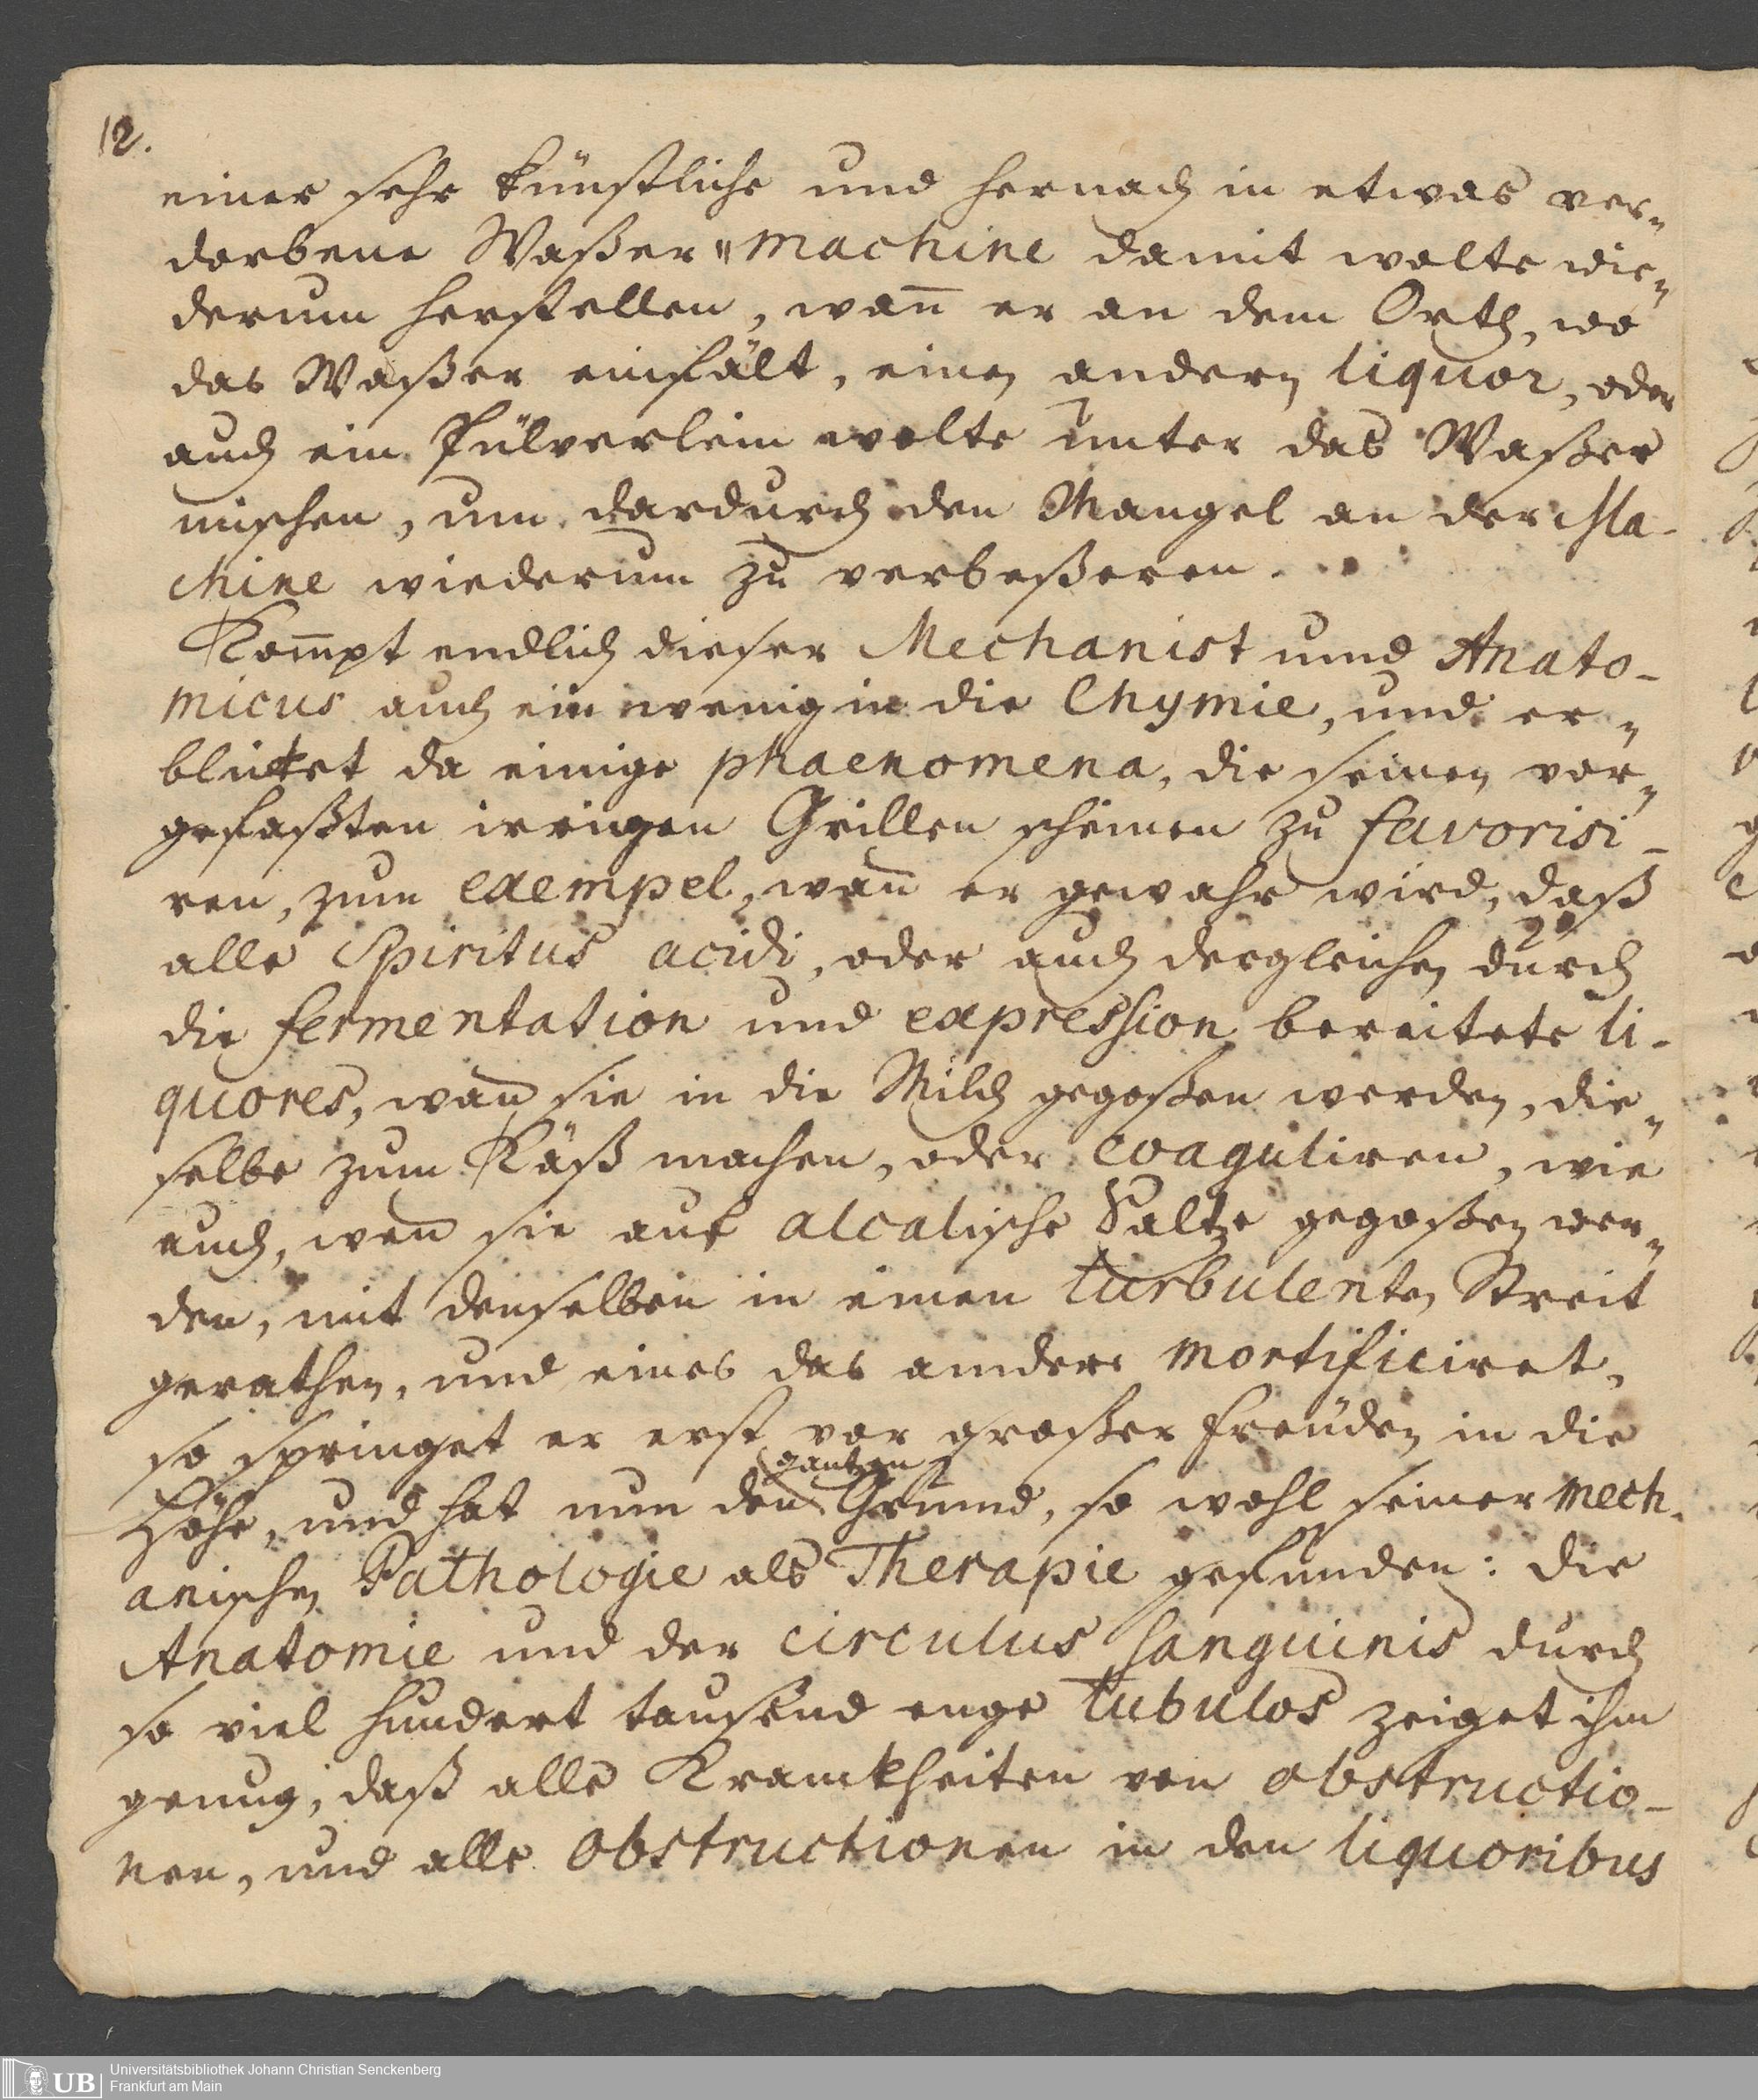 12.
einer sehr künstliche und hernach in etwas ver-
dorbene Waßer-machine damit wolte wie-
derum herstellen, wañ er an dem Orth, wo
das Waßer einfält, einen andern liquor, oder
auch ein Pülverlein wolte unter das Waßer
mischen, um dardurch den Mangel an der Ma-
chine wiederum zu verbeßeren.
Kom̃pt endlich dieser Mechanist und Anato-
micus auch ein wenig in die Chymie, und er-
blicket da einige phaenomena, die seinen vor-
gefaßten irrigen Grillen scheinen zu favorisi-
ren, zum exempel, wañ er gewahr wird, daß
alle Spiritus acidi, oder auch dergleichen durch
die fermentation und expression bereitete li-
quores, wañ sie in die Milch gegoßen werden, die-
selbe zum Käß machen, oder coaguliren, wie
auch, wen sie auf alcalische Saltze gegoßen wer-
den, mit denselben in einen turbulenten Streit
gerathen, und eines das andere mortificiret,
so springet er erst vor großer Freüden in die
Höhe, und hat nun den gantzen Grund, so wohl seiner mech-
anischen Pathologie als Therapie gefunden: die
Anatomie und der circulus sanguinis durch
so viel hundert tausend enge tubulos zeiget ihm
genug, daß alle Kranckheiten von obstructio-
nen, und alle obstructionen in den liquoribus
UB Universitätsbibliothek Johann Christian Senckenberg
Frankfurt am Main